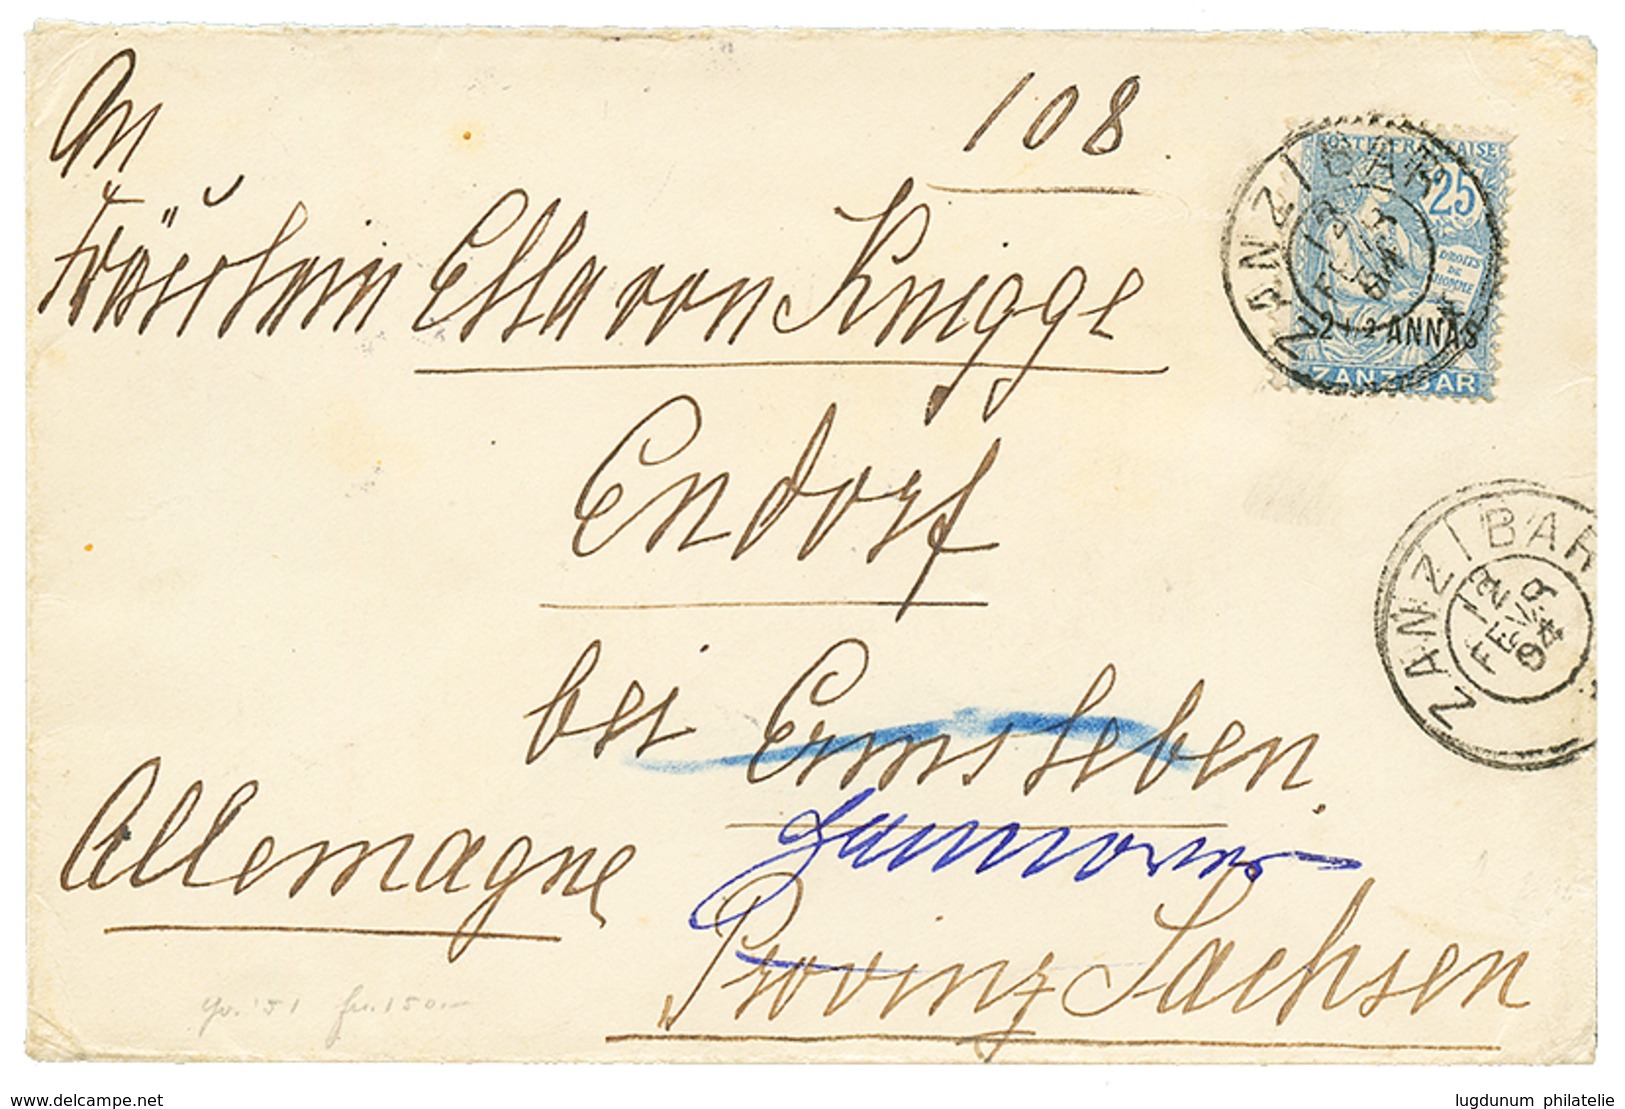 An
108
Fräulein Ella von Knigge
Endorf
bei Ermsleben.
Hannover
Allemagne
Provinz Sachsen
POSTE FRANÇAISE
25
DROITS
DE
L'HOMME
2 1/2 ANNAS
ZANZIBAR
ZANZIBAR
ZANZIBAR
12
FEVR
04
yv. '51 fr. 150.-
www.delcampe.net
lugdunum philatelie